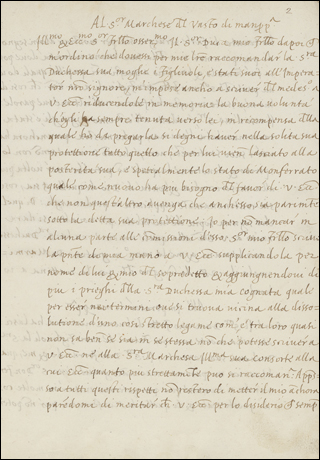 2
Al S.or Marchese del Vasto di man pp.a
Ill.mo & Ecc.mo S.or fr̃llo osser.mo Il S.or Duca mio fr̃llo dapoi
mordino che dovessi per mio lr̃e raccomandar la S.ra
Duchessa sua moglie i figliuoli, e stati suoi all'Impera-
tor nr̃o signore, m'impose anche a scriver del medes.o a
V. Ecc. riducendole in memoria la buona volunta
ch'egli ha sempre tenuta verso lei, in ricompensa della
quale di pregarla si degni haver nella solita sua
protettione tutto quello che per lui lassato alla
posterita sua, e spetialmente lo stato de Monferrato
quale come nuovo ha piu bisogno del favor di V. Ecc.
che non quest'altro, avenga che anch'esso sia parimte
sotto la detta sua protettione. Io per no mancar in
alcuna parte alle commissioni d'esso S.or mio fr̃llo scrivo
la pr̃nte de pua mano a V. Ecc. supplicandola per
nome di lui & mio del sopradetto & aggiungnendovi di
piu i prieghi della S.ra Duchessa mia cognata quale
per esser ne termini ove si truova vicina alla disso-
lutione d'uno cosi stretto legame com'e tra loro quasi
non sa ben se sia in se stessa no che potesse scrivere a
V. Ecc. ne alla S.ra Marchesa Ill.ma sua consorte alla
cui Ecc. quanto piu strettamte puo si raccomanda. Appis-
so a tutti questi rispetti no restero di metter il mio anchora
paredomi di meritar che V. Ecc. per lo desiderio ch sempr